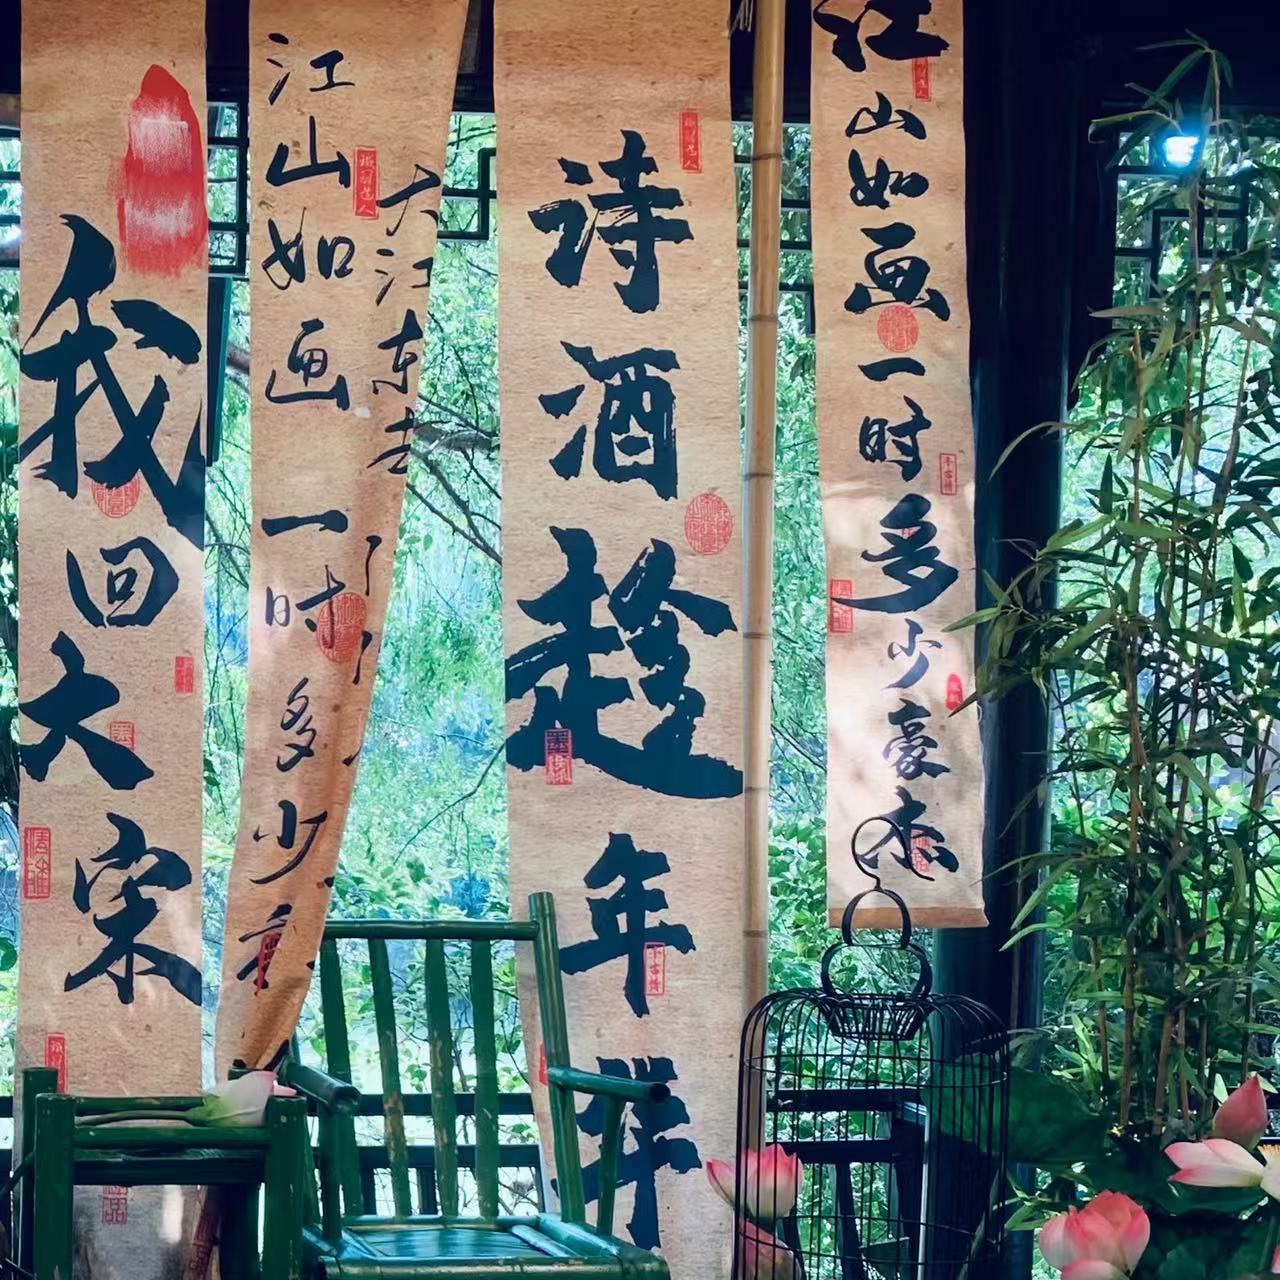 江山如画一时多少豪杰
诗酒趁年华
大江东去
江山如画一时多少
我回大宋